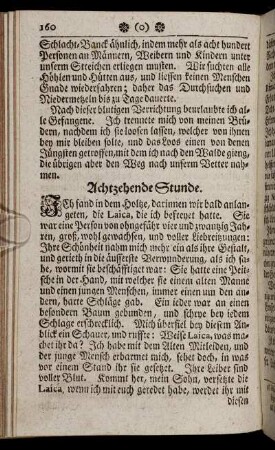 160 ❀ (o) ❀
Schlacht-Banck ähnlich, indem mehr als acht hundert
Personen an Männern, Weibern und Kindern unter
unserm Streichen erliegen musten. Wir suchten alle
Höhlen und Hütten aus, und liessen keinen Menschen
Gnade wiederfahren; daher das Durchsuchen und
Niedermetzeln bis 29 Tage dauerte.
Nach dieser blutigen Verrichtung beurlaubte ich al-
le Gefangene. Ich trennete mich von meinen Brü-
dern, nachdem ich sie loosen lassen, welcher von ihnen
bey mir bleiben solte, und das Loos einen von denen
Jüngsten getroffen, mit dem ich nach den Walde gieng,
die übrigen aber den Weg nach unserm Vetter nah-
men.
Achtzehende Stunde.
ICh fand in dem Holtze, darinnen wir bald anlan-
geten, die Laica, die ich befreyet hatte. Sie
war eine Person von ohngefähr vier und zwantzig Jah-
ren, groß, wohl gewachsen, und voller Liebreitzungen:
Ihre Schönheit nahm mich mehr ein als ihre Gestalt,
und gerieth in die äusserste Verwunderung, als ich sa-
he, wormit sie beschäfftiget war: Sie hatte eine Peit-
sche in der Hand, mit welcher sie einem alten Manne
und einen jungen Menschen, immer einen um den an-
dern, harte Schläge gab. Ein ieder war an einen
besondern Baum gebunden, und schrye bey iedem
Schlage erschrecklich. Mich überfiel bey diesem An-
blick ein Schauer, und ruffte: Weise Laica, was ma-
chet ihr da? Ich habe mit dem Alten Mitleiden, und
der junge Mensch erbarmet mich, sehet doch, in was
vor einem Stand ihr sie gesetzt. Ihre Leiber sind
voller Blut. Kommt her, mein Sohn, versetzte die
Laica, wenn ich mit euch geredet habe, werdet ihr mit
diesen